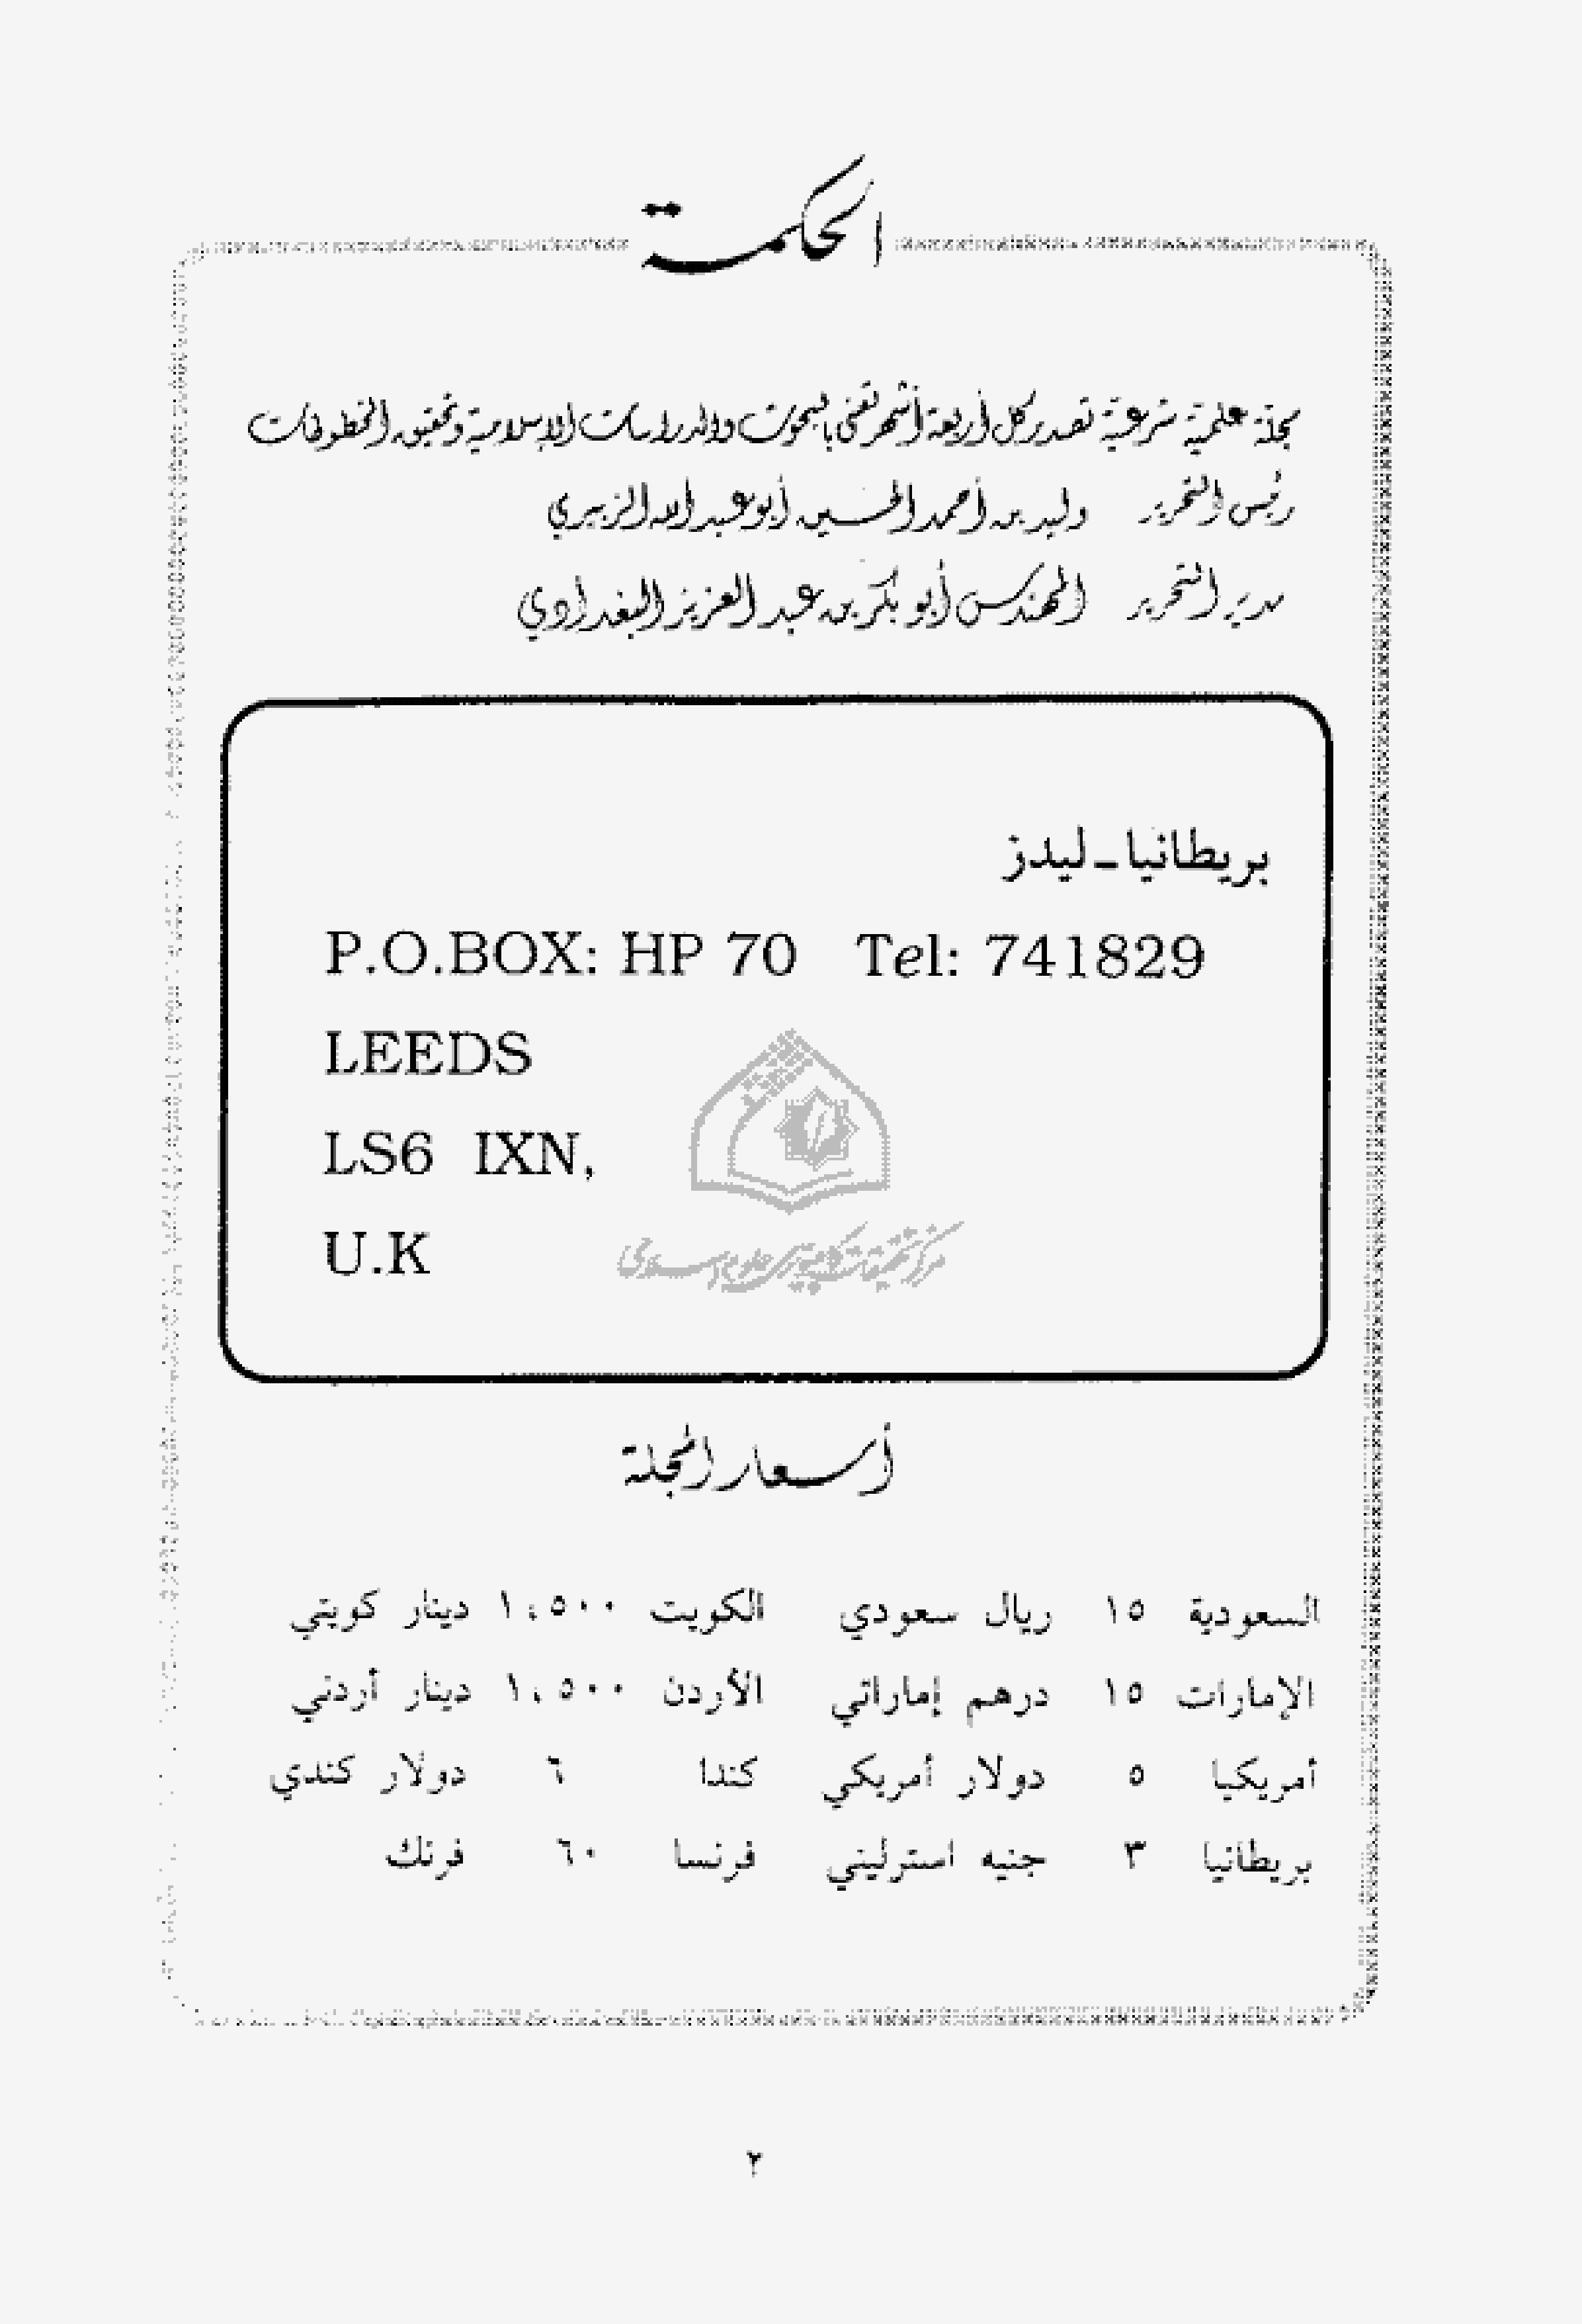 الحكمة
مجلة علمية شرعية تصدر كل أربعة أشهر تعنى بالبحوث والدراسات الإسلامية وتحقيق المخطوطات
رئيس التحرير وليد بن أحمد الحسين أبو عبد الله الزبيري
مدير التحرير المهندس أبو بكر بن عبد العزيز البغدادي
بريطانيا - ليدز
P.O.BOX: HP 70 Tel: 741829
LEEDS
LS6 IXN,
U.K
مركز تحقيقات كامپيوتري علوم اسلامي
أسعار المجلة
السعودية ١٥ ريال سعودي الكويت ١،٥٠٠ دينار كويتي
الإمارات ١٥ درهم إماراتي الأردن ١،٥٠٠ دينار أردني
أمريكيا ٥ دولار أمريكي كندا ٦ دولار كندي
بريطانيا ٣ جنيه استرليني فرنسا ٦٠ فرنك
٢